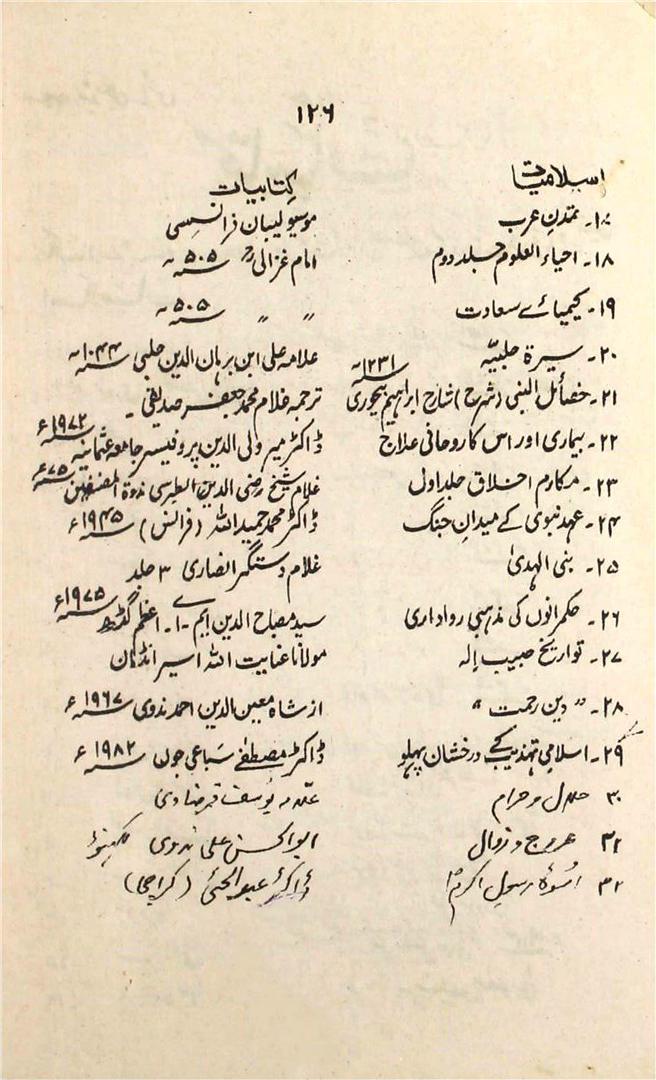 ۱۲۶
اسلامیات کتابیات
۱۷۔ تمدنِ عرب موسیو لیبان فرانسیسی
۱۸۔ احیاء العلوم جلد دوم امام غزالیؒ ۵۰۵ھ
۱۹۔ کیمیائے سعادت ״ ״ ۵۰۵ھ
۲۰۔ سیرۃ حلبیہ علامہ علی ابن برہان الدین حلبی ۱۰۴۴ھ
۲۱۔ خصائل النبی (شرح) شارح ابراہیم بیجوری ۱۲۳۱ھ ترجمہ غلام محمد جعفر صدیقی۔
۲۲۔ بیماری اور اس کا روحانی علاج ڈاکٹر میر ولی الدین پروفیسر جامعہ عثمانیہ ۱۹۷۲ء
۲۳۔ مکارم اخلاق جلد اول غلام شیخ رضی الدین الطبرسی ندوۃ المصنفین ۷۵ء
۲۴۔ عہد نبوی کے میدانِ جنگ ڈاکٹر محمد حمید اللہ (فرانس) ۱۹۴۵ء
۲۵۔ بنی الہدیٰ غلام دستگیر انصاری ۳ جلد
۲۶۔ حکمرانوں کی مذہبی رواداری سید مصباح الدین ایم۔اے۔ اعظم گڑھ ۱۹۷۵ء
۲۷۔ تواریخ حبیب الہ مولانا عنایت اللہ اسیر انڈمان
۲۸۔ "دین رحمت" از شاہ معین الدین احمد ندوی ۱۹۶۷ء
۲۹۔ اسلامی تہذیب کے درخشان پہلو ڈاکٹر مصطفٰے سباعی جون ۱۹۸۲ء
۳۰ حلال و حرام علامہ یوسف قرضاوی
۳۲ عروج و زوال ابوالحسن علی ندوی لکھنؤ
۳۲ اسوۂ رسولِ اکرمؐ ڈاکٹر عبدالحئی (کراچی)